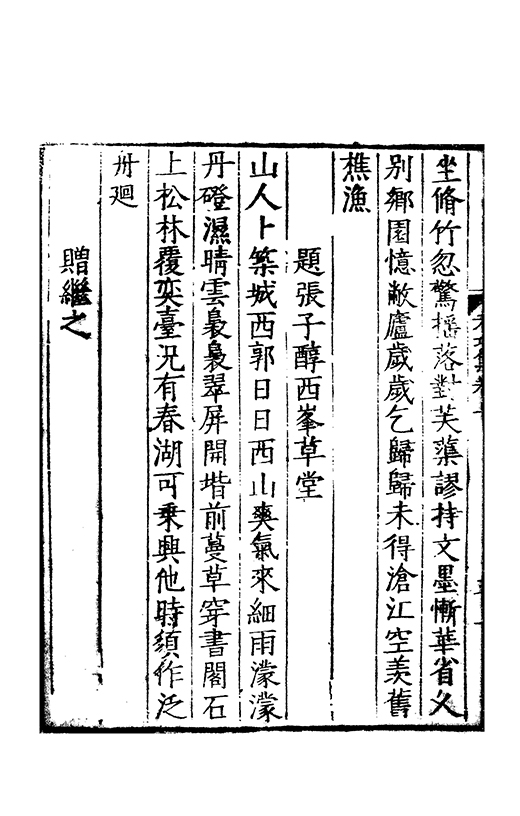 坐脩竹忽驚揺落對芙蕖謬持文墨慚華省久
别鄉園憶敝廬歲歲乞歸歸未得滄江空羨舊
樵漁
題張子醇西峯草堂
山人卜築城西郭日日西山爽氣來細雨濛濛
丹磴濕晴雲裊裊翠屏開堦前蔓草穿書閣石
上松林覆奕臺况有春湖可乗興他時須作泛
舟廻
贈繼之